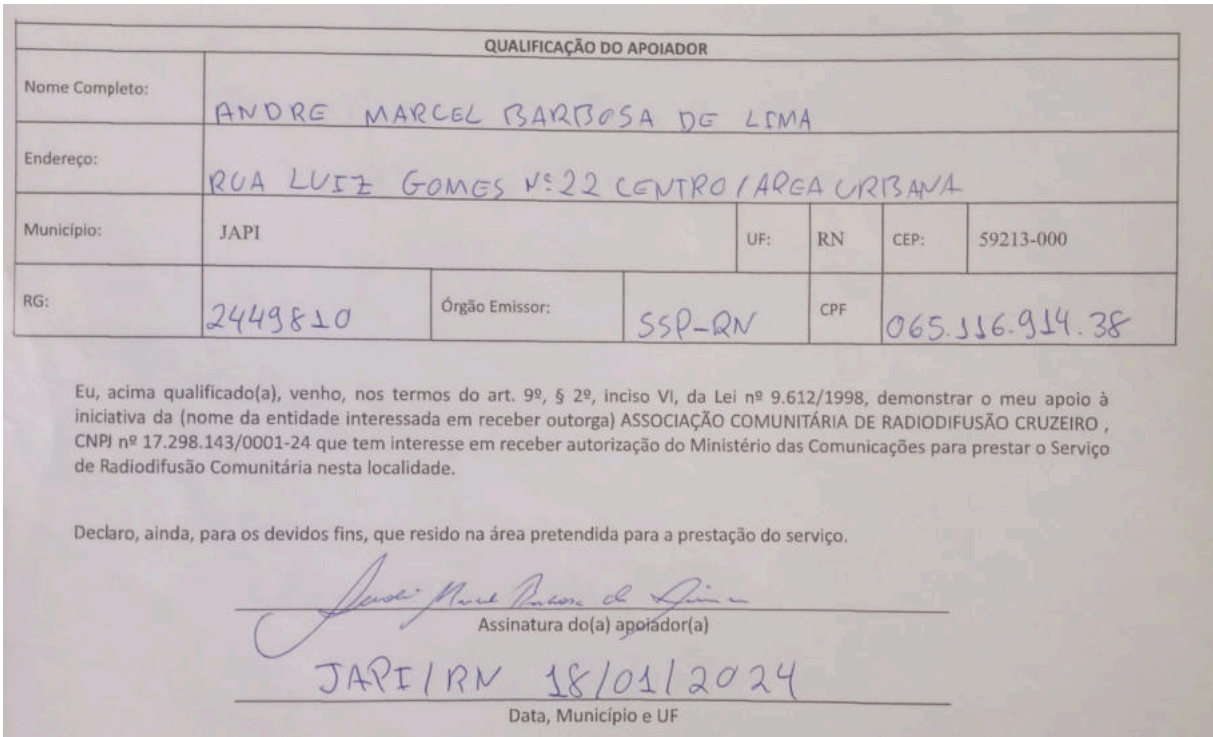 QUALIFICAÇÃO DO APOIADOR
Nome Completo: ANDRE MARCEL BARBOSA DE LIMA
Endereço: RUA LUIZ GOMES Nº 22 CENTRO / AREA URBANA
Município: JAPI UF: RN CEP: 59213-000
RG: 2449810 Órgão Emissor: SSP-RN CPF 065.116.914.38
Eu, acima qualificado(a), venho, nos termos do art. 9º, § 2º, inciso VI, da Lei nº 9.612/1998, demonstrar o meu apoio à
iniciativa da (nome da entidade interessada em receber outorga) ASSOCIAÇÃO COMUNITÁRIA DE RADIODIFUSÃO CRUZEIRO ,
CNPJ nº 17.298.143/0001-24 que tem interesse em receber autorização do Ministério das Comunicações para prestar o Serviço
de Radiodifusão Comunitária nesta localidade.
Declaro, ainda, para os devidos fins, que resido na área pretendida para a prestação do serviço.
Marcel Barbosa de Lima
Assinatura do(a) apoiador(a)
JAPI/RN 18/01/2024
Data, Município e UF